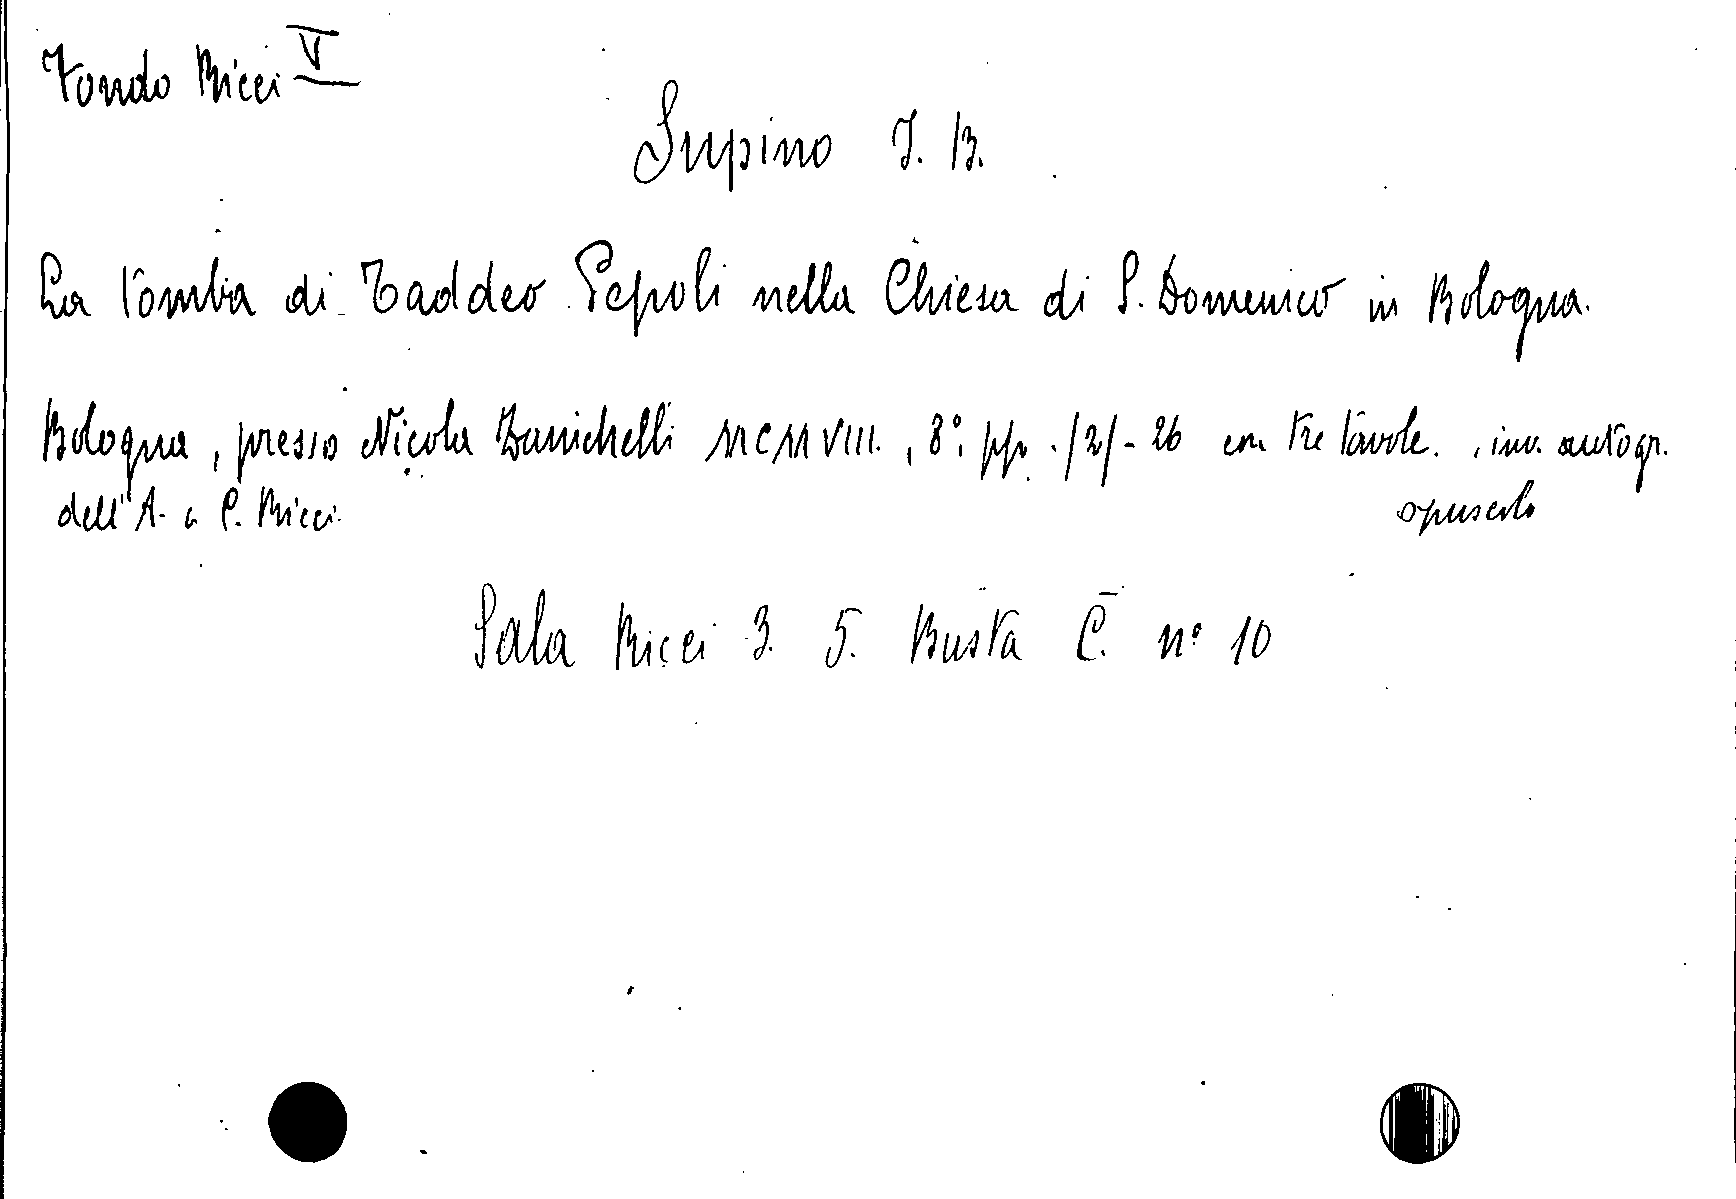 Fondo Ricci V
Supino I. B.
La tomba di Taddeo Pepoli nella Chiesa di S. Domenico in Bologna.
Bologna, presso Nicola Zanichelli MCMVIII., 8° pp. /2/-26 con tre tavole. , inv. autogr.
dell'A. a C. Ricci.
opuscolo
Sala Ricci 3. 5. Busta C. n° 10